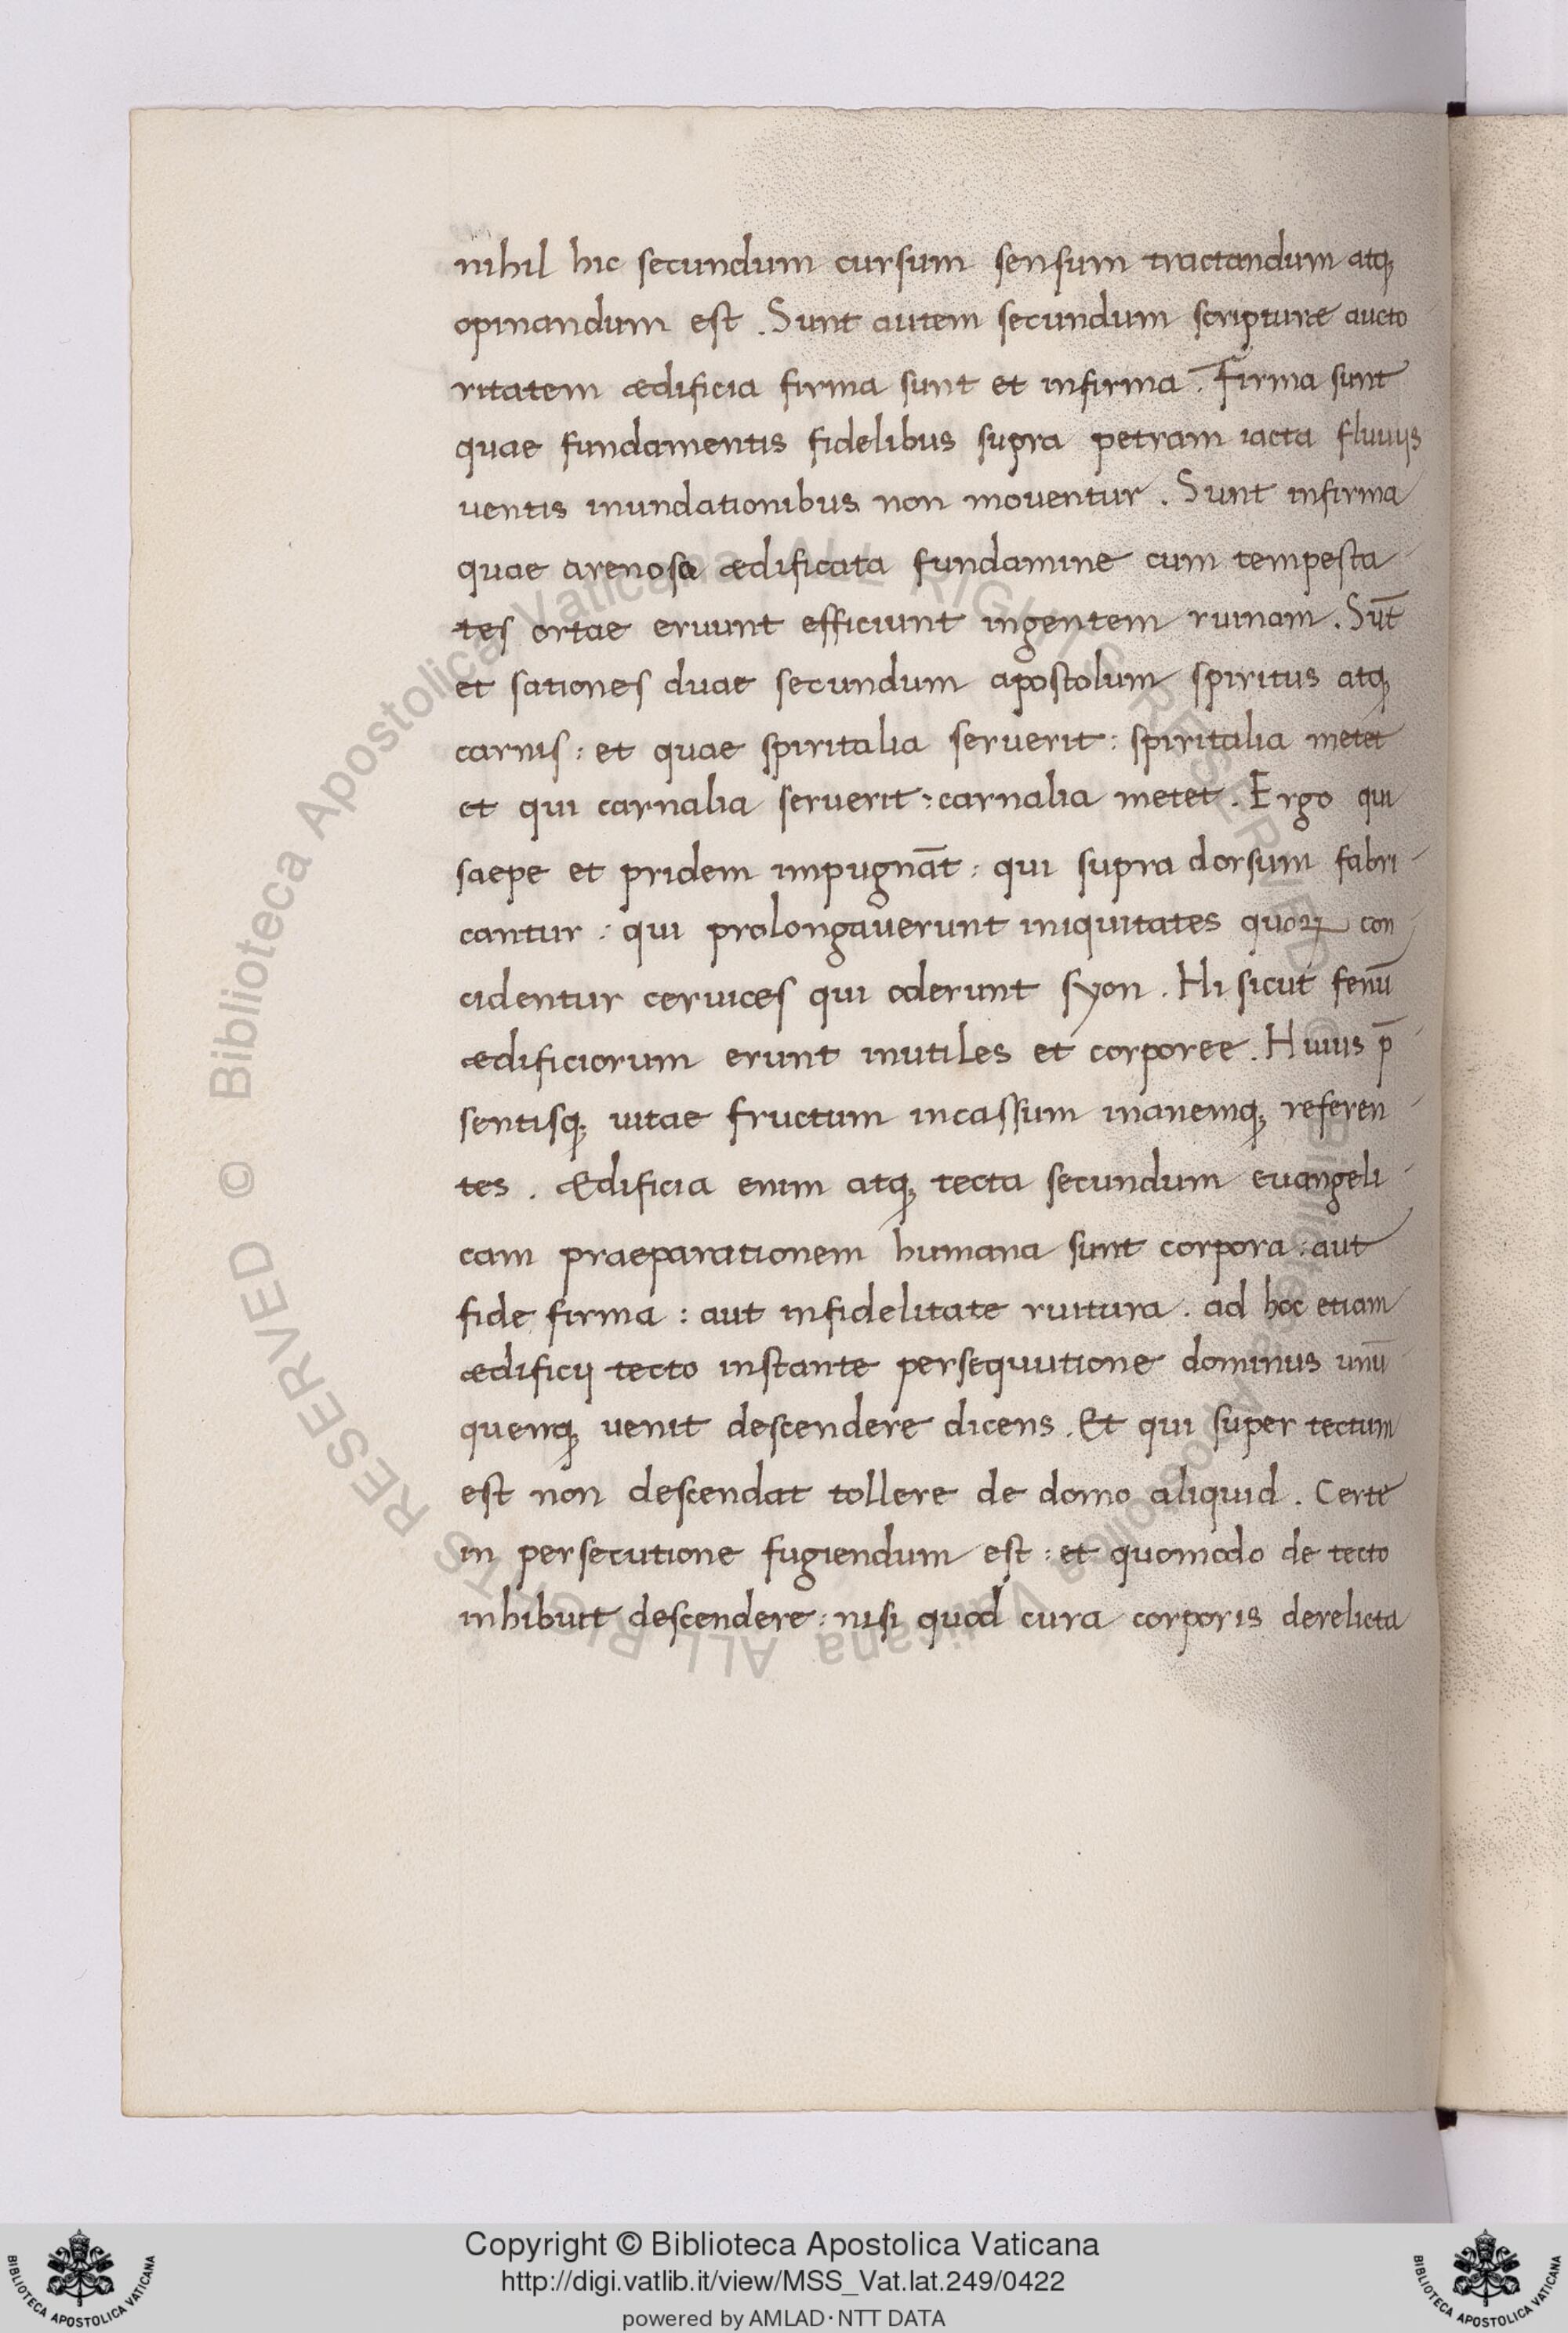 nihil hic secundum cursum sensum tractandum atq;
opinandum est. Sunt autem secundum scripturæ aucto
ritatem ædificia firma sunt et infirma. Firma sunt
quae fundamentis fidelibus supra petram iacta fluuijs
uentis inundationibus non mouentur. Sunt infirma
quae arenosa ædificata fundamine cum tempesta
tes ortae eruunt efficiunt ingentem ruinam. Sūt
et sationes duae secundum apostolum spiritus atq;
carnis: et quae spiritalia seruerit: spiritalia metet
et qui carnalia seruerit: carnalia metet. Ergo qui
saepe et pridem impugnāt: qui supra dorsum fabri
cantur: qui prolongauerunt iniquitates quoꝝ con
cidentur ceruices qui oderunt syon. Hi sicut fenū
ædificiorum erunt inutiles et corporee. Huius p̄
sentisq; uitae fructum incassum inanemq; referen
tes. Ædificia enim atq; tecta secundum euangeli
cam praeparationem humana sunt corpora: aut
fide firma: aut infidelitate ruitura. ad hoc etiam
ædificij tecto instante persequutione dominus unū
quenq; venit descendere dicens. Et qui super tectum
est non descendat tollere de domo aliquid. Certe
in persecutione fugiendum est: et quomodo de tecto
inhibuit descendere: nisi quod cura corporis derelicta
© Biblioteca Apostolica Vaticana ALL RIGHTS RESERVED © Biblioteca Apostolica Vaticana ALL RIGHTS RESERVED
Copyright © Biblioteca Apostolica Vaticana
http://digi.vatlib.it/view/MSS_Vat.lat.249/0422
powered by AMLAD·NTT DATA
BIBLIOTECA APOSTOLICA VATICANA
BIBLIOTECA APOSTOLICA VATICANA